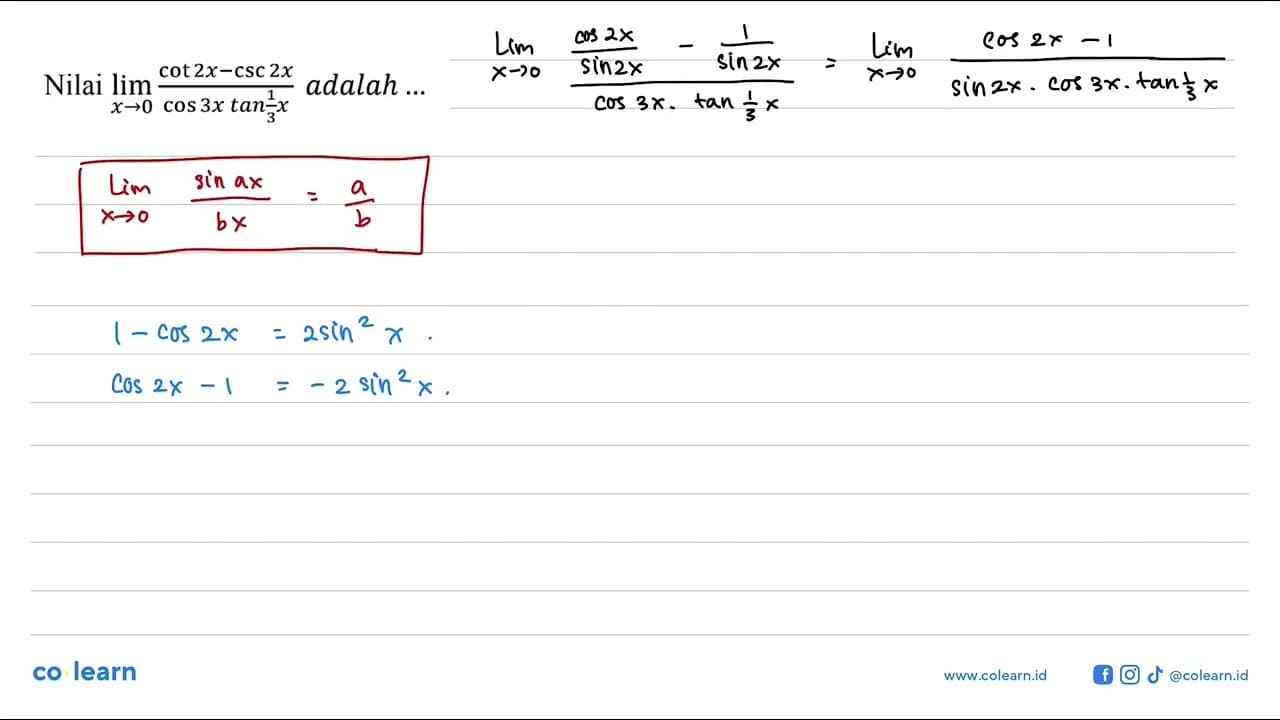 Nilai lim x→0 (cot 2x−csc 2x)/(cos 3x tan 1/3 x) adalah ...
Lim x→0 (cos 2x/sin 2x − 1/sin 2x)/(cos 3x. tan 1/3 x) = Lim x→0 (cos 2x − 1)/(sin 2x. cos 3x. tan 1/3 x)
Lim x→0 sin ax/bx = a/b
1 − cos 2x = 2 sin² x .
Cos 2x − 1 = − 2 sin² x .
co learn
www.colearn.id @colearn.id